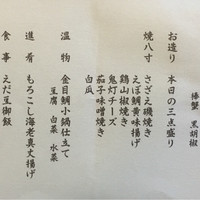 棒蟹 黒胡椒
お造り 本日の三点盛り
焼八寸 さざえ磯焼き
えぼ鯛黄味揚げ
鶏山椒焼き
鬼灯チーズ
茄子味噌焼き
白瓜
温物 金目鯛小鍋仕立て
豆腐 白菜 水菜
進肴 もろこし海老真丈揚げ
食事 えだ豆御飯